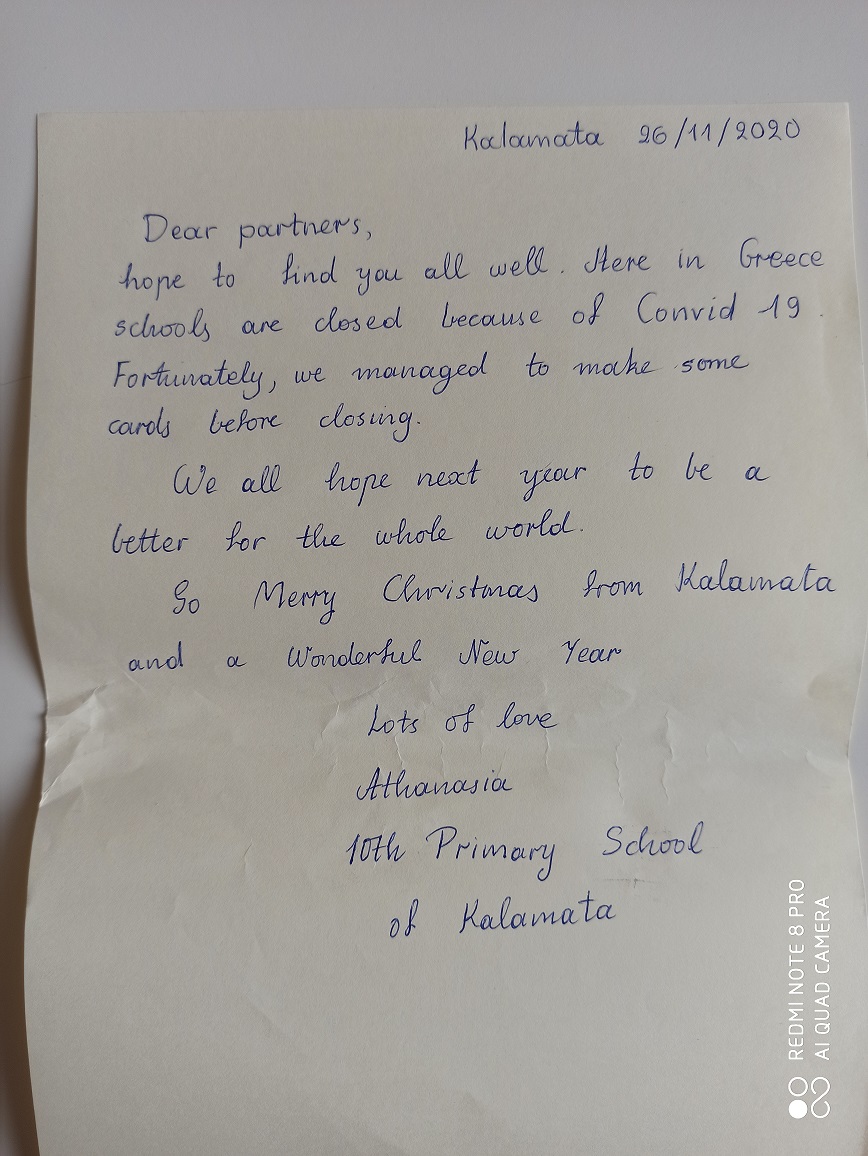 Kalamata 26/11/2020
Dear partners,
hope to find you all well. Here in Greece
schools are closed because of Convid 19.
Fortunately, we managed to make some
cards before closing.
We all hope next year to be a
better for the whole world.
So Merry Christmas from Kalamata
and a Wonderful New Year
Lots of love
Athanasia
10th Primary School
of Kalamata
REDMI NOTE 8 PRO
AI QUAD CAMERA